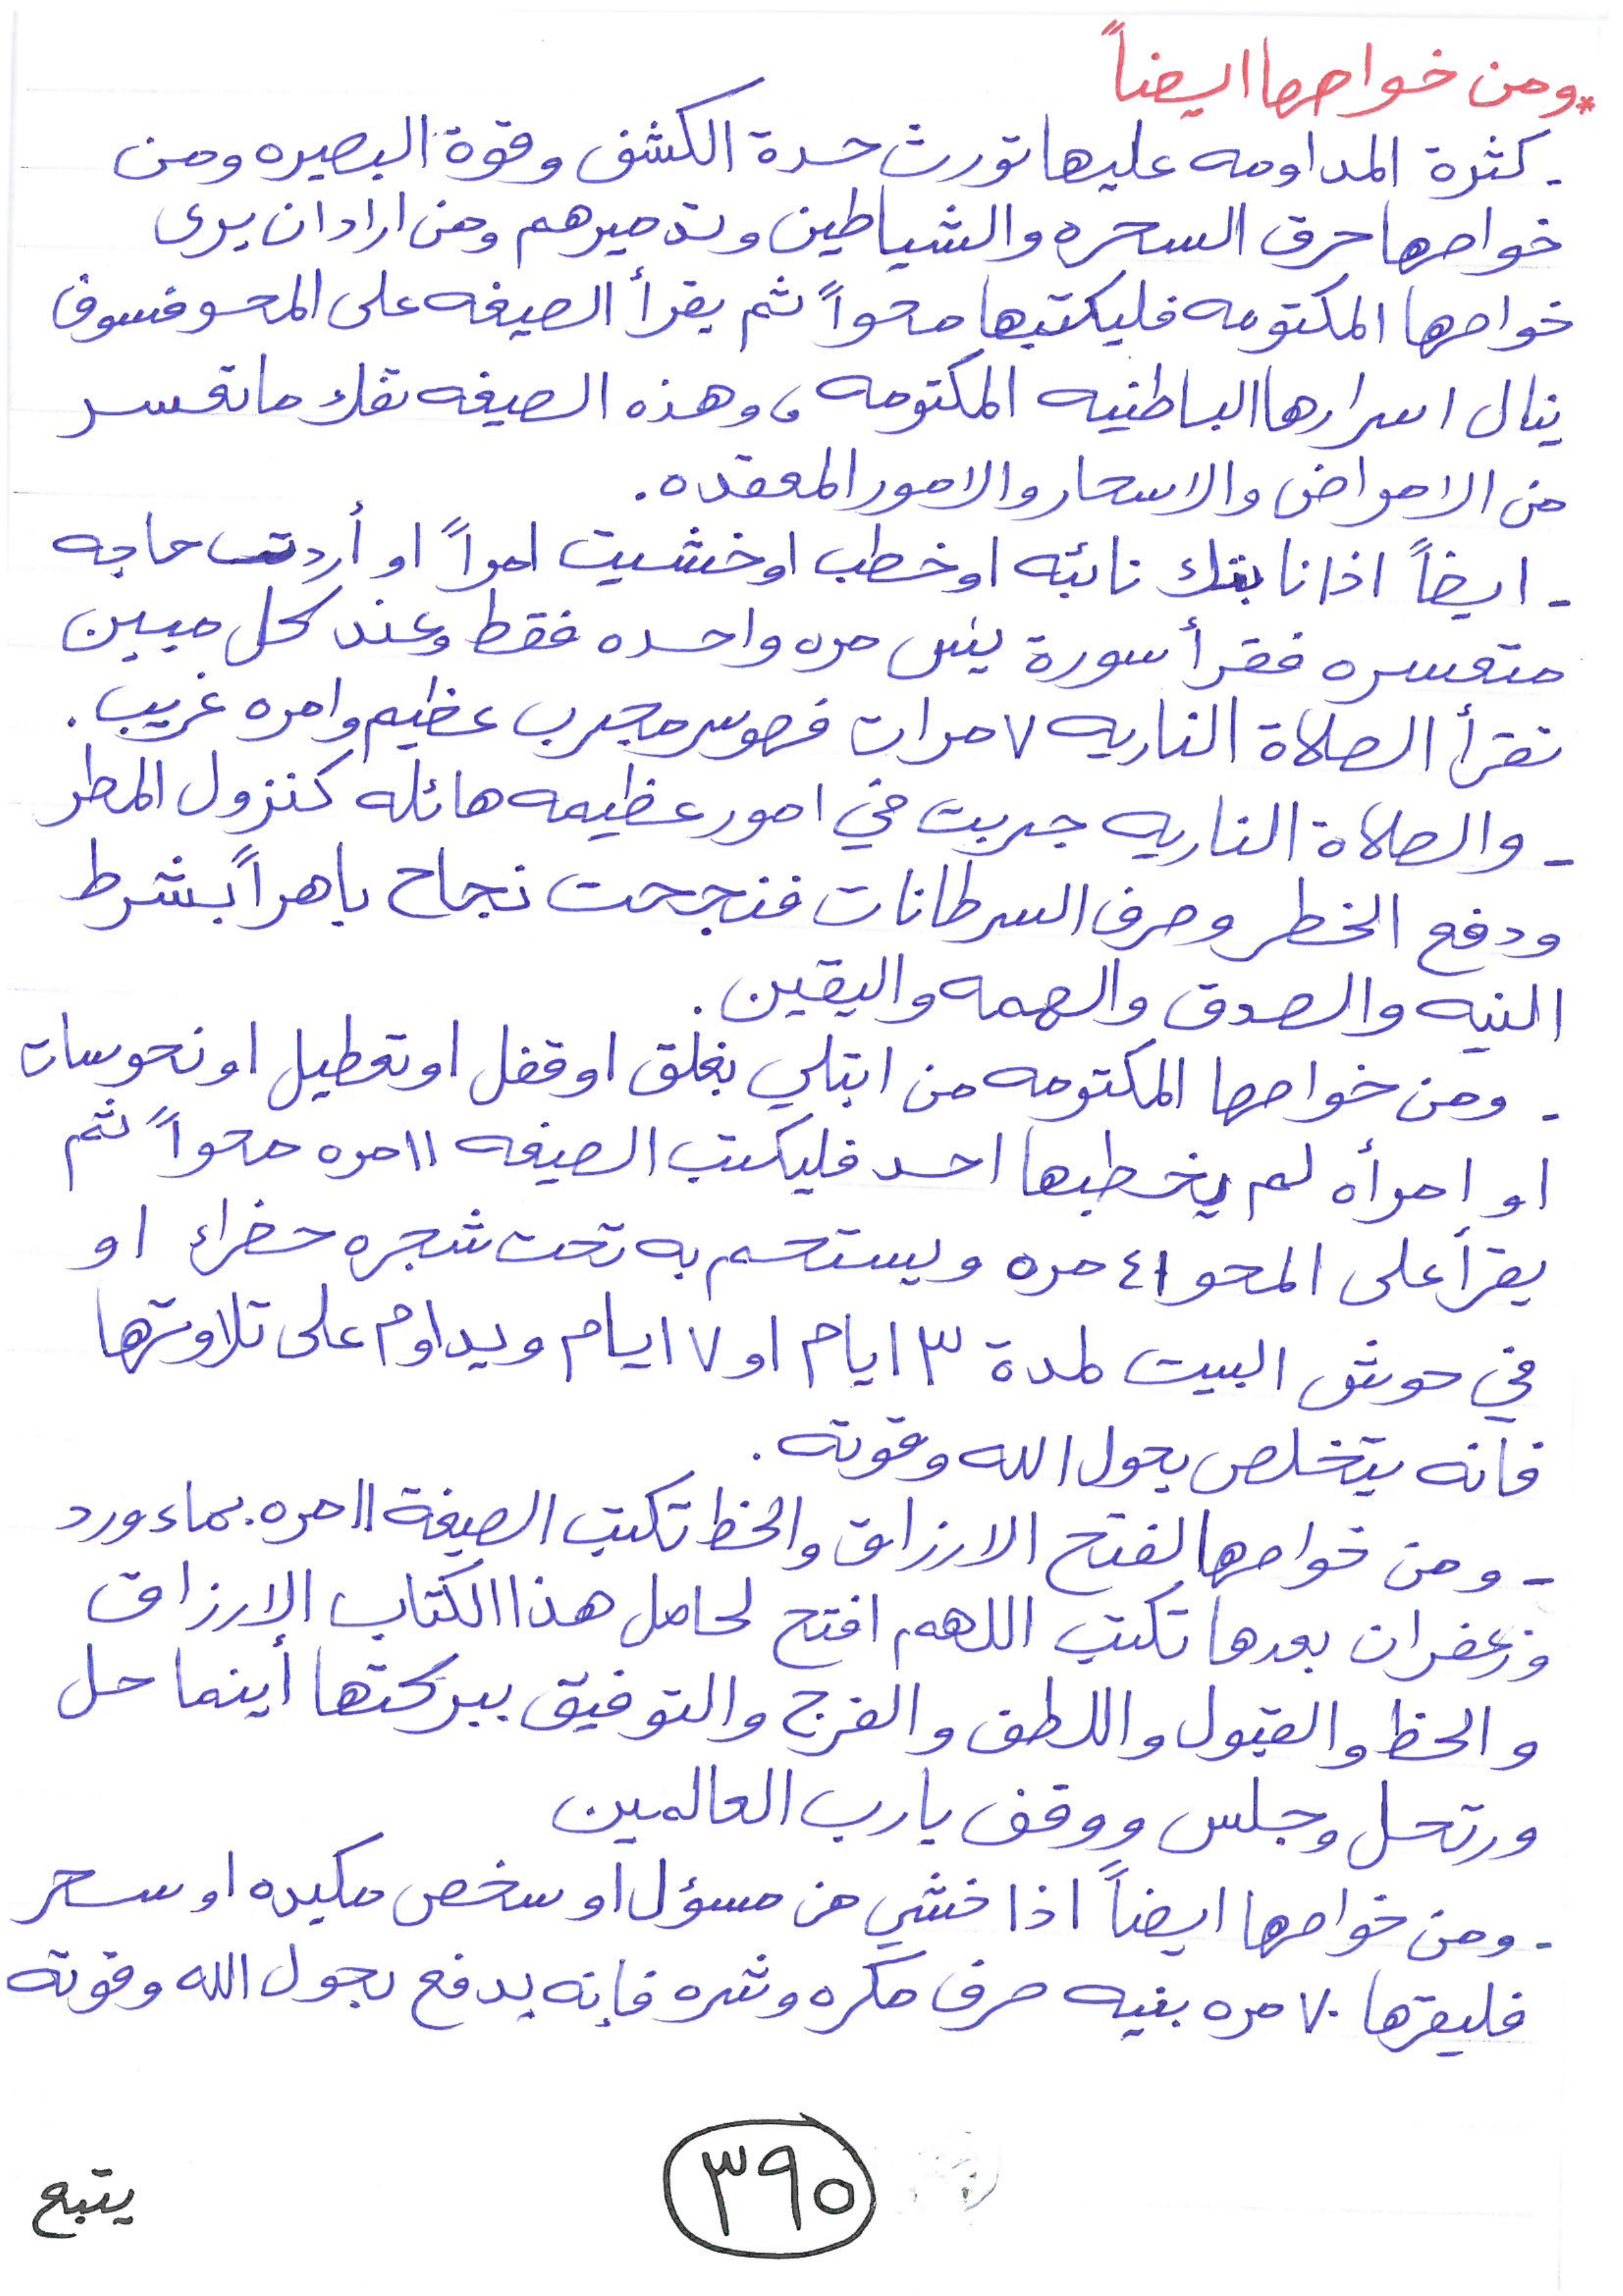 * ومن خواصها ايضاً
- كثرة المداومه عليها تورث حدة الكشف وقوة البصيره ومن
خواصها حرق السحره والشياطين وتدميرهم ومن اراد ان يرى
خواصها المكتومه فليكتبها محواً ثم يقرأ الصيغه على المحو فسوف
ينال اسرارها الباطنيه المكتومه ، وهذه الصيغه تفك ما تعسر
من الامراض والاسحار والامور المعقده .
- ايضاً اذا نابتك نائبه او خطب او خشيت امراً او أردت حاجه
متعسره فقرأ سورة يس مره واحده فقط وعند كل مبين
تقرأ الصلاة الناريه ٧ مرات فهو سر مجرب عظيم وامره غريب .
- والصلاة الناريه جربت في امور عظيمه هائله كنزول المطر
ودفع الخطر وصرف السرطانات فنجحت نجاح باهراً بشرط
النيه والصدق والهمه واليقين .
- ومن خواصها المكتومه من ابتلي بغلق او قفل او تعطيل او نحوسات
او امرأه لم يخطبها احد فليكتب الصيغه ١١ مره محواً ثم
يقرأ على المحو ٤١ مره ويستحم به تحت شجره خضراء او
في حوش البيت لمدة ٣ ايام او ٧ ايام ويداوم على تلاوتها
فانه يتخلص بحول الله وقوته .
- ومن خواصها لفتح الارزاق والحظ تكتب الصيغة ١١ مره بماء ورد
وزعفران بعدها تكتب اللهم افتح لحامل هذا الكتاب الارزاق
والحظ والقبول واللطف والفرج والتوفيق ببركتها أينما حل
ورتحل وجلس ووقف يارب العالمين
- ومن خواصها ايضاً اذا خشي من مسؤل او سخص مكيده او سحر
فليقرها ٧٠ مره بنيه صرف مكره وشره فإنه يدفع بحول الله وقوته
٣٩٠
يتبع